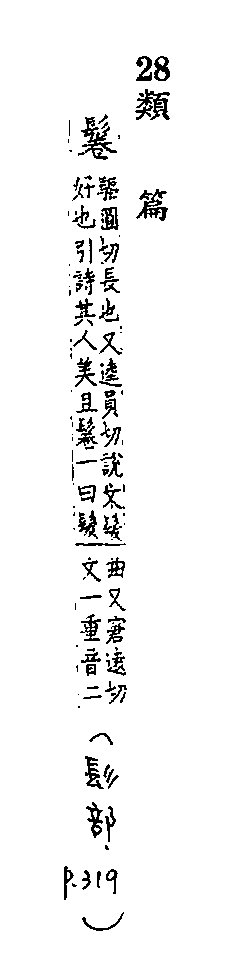 28 類篇
鬈
驅圓切長也又逵員切說文髮
好也引詩其人美且鬈一曰髮
曲又窘遠切
文一重音二
(髟部、p.319)